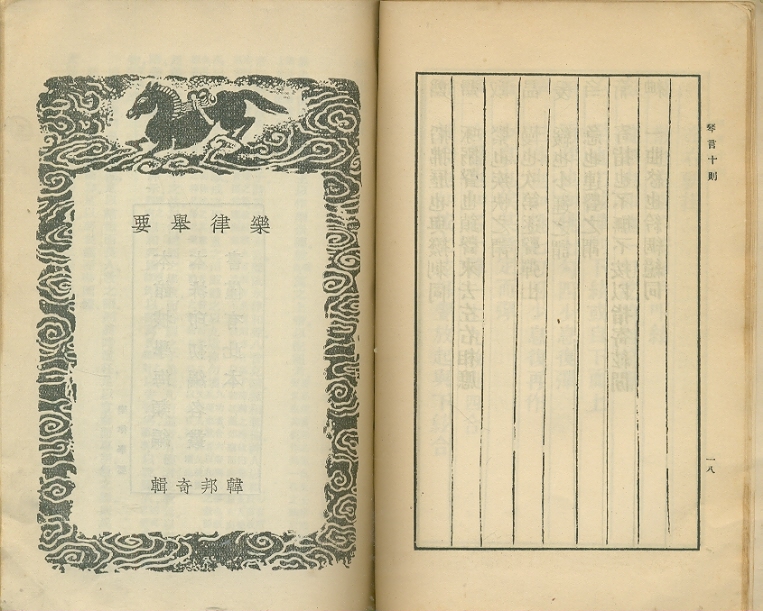 琴言十則
一八
樂律舉要
韓邦奇輯